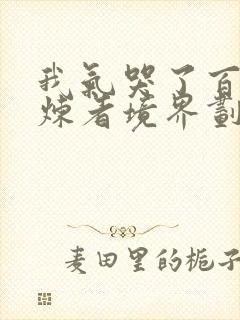 我氣哭了百
煉者境界劃
麦田里的栀子